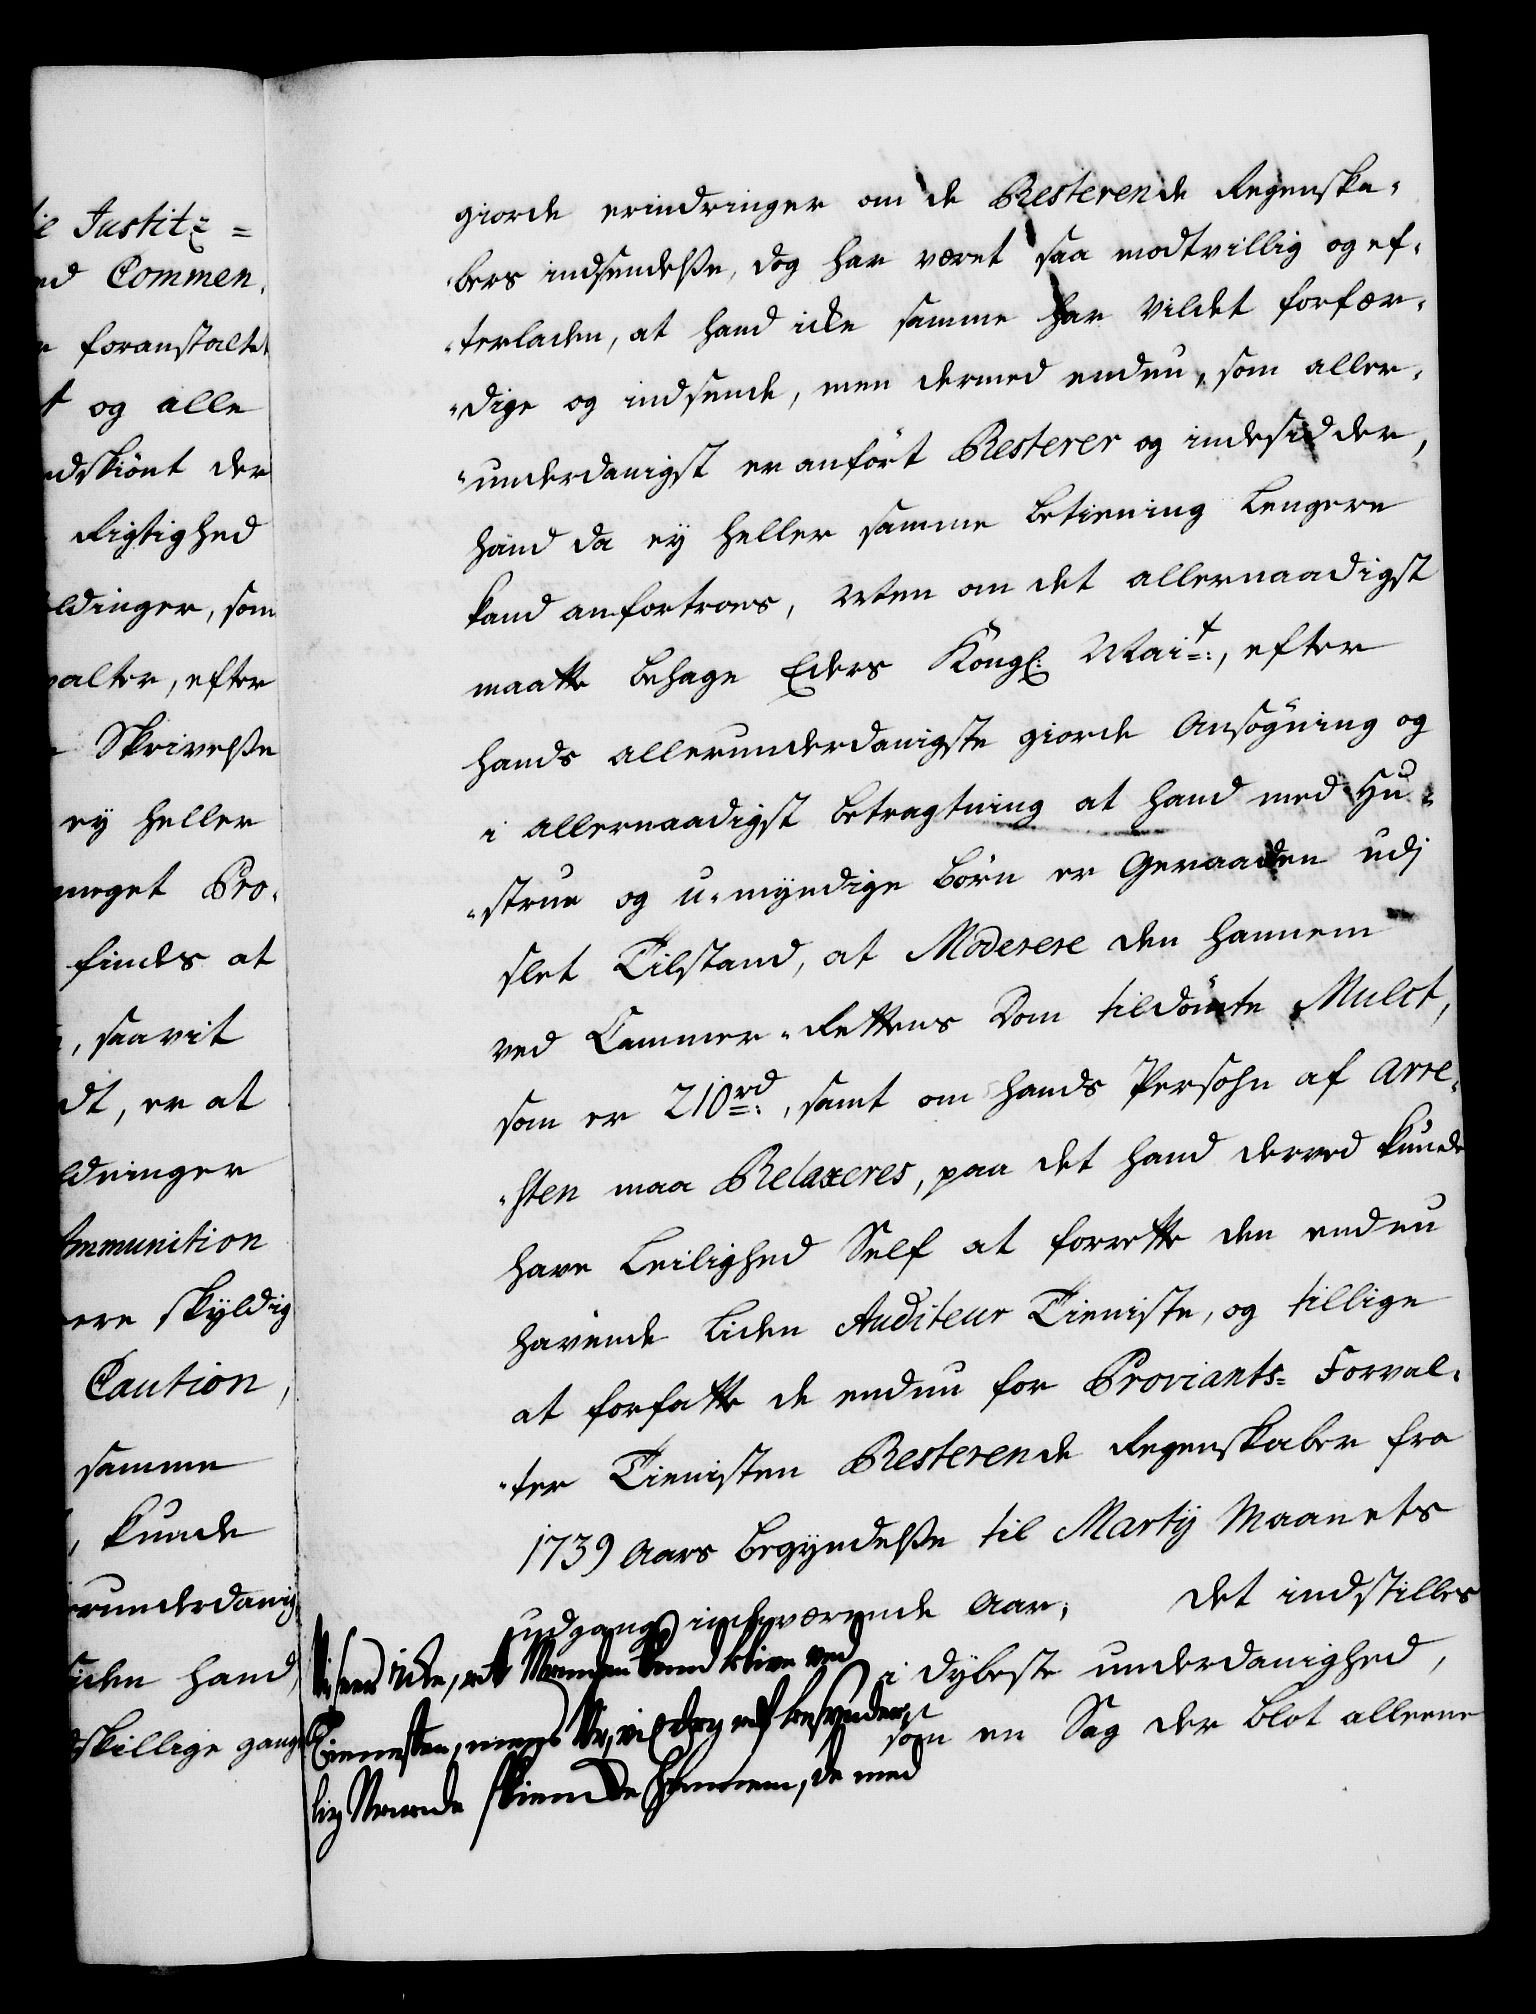 ie Justitz=
ed Commen,
foranstaltet
og alle
dskiönt der
Rigtighed
ldinger, som
valter, efter
Skrivelße
ey heller
meget Pro-
findes at
, saavit
dt, er at
ldninger
Ammunition
ere skÿldig
Caution,
samme
, kunde
runderdanig
iden hand
skillige gange
giorde erindringer om de Resterende Regenska-
bers indsendelße, dog har været saa modtvillig og ef-
-terladen, at hand icke samme har vildet forfær-
-dige og indsende, men dermed endnu, som aller-
-underdanigst er anfört Resterer og indesidder,
hand da ey heller samme betiening lengere
kand anfortroes, Men om det allernaadigst
maatte behage Eders Kongl: Mait:, efter
hands allerunderdanigste giorde Ansögning og
i allernaadigst betragtning at hand med Hu-
-strue og u-mÿndige börn er Geraaden udj
slet Tilstand, at Moderere den hannem
ved Cammer-Rettens Dom tildömte Mulct,
som er 210rd:, samt om hands Persohn af Arre-
-sten maa Relaxeres, paa det hand derved kunde
have Leilighed Self at forrette den endnu
havende liden Auditeur Tieniste, og tillige
at forfatte de endnu for Proviants-Forval-
-ter Tienisten Resterende Regenskaber fra
1739 Aars begÿndelße til Martÿ Maanets
udgang indeværende Aar; det indstilles
i dÿbeste underdanighed,
som en Sag der blot alleene
icke, at Manden kand blive ved
Tienesten, mens
Naade skiencke hannem, de med